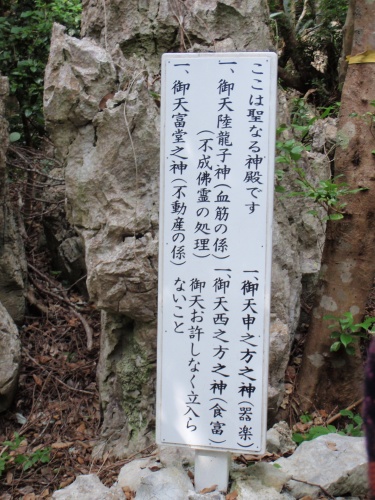 ここは聖なる神殿です
一、御天陸龍子神(血筋の係)
(不成佛霊の処理)
一、御天富堂之神(不動産の係)
一、御天申之方之神(器楽)
一、御天西之方之神(食富)
御天お許しなく立入ら
ないこと